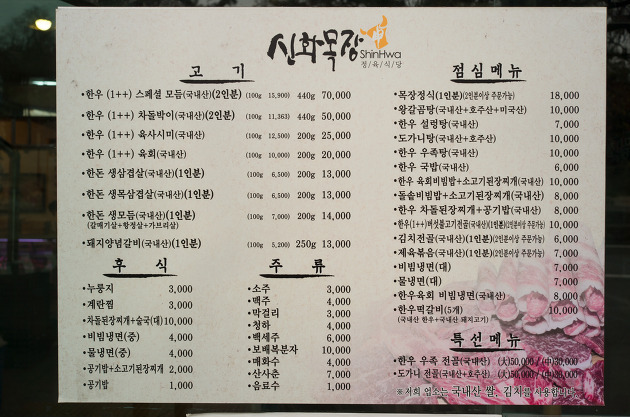 신화목장
ShinHwa
정/육/식/당
고 기
•한우 (1++) 스페셜 모듬(국내산)(2인분) (100g 15,900) 440g 70,000
•한우 (1++) 차돌박이(국내산)(2인분) (100g 11,363) 440g 50,000
•한우 (1++) 육사시미(국내산) (100g 12,500) 200g 25,000
•한우 (1++) 육회(국내산) (100g 10,000) 200g 20,000
•한돈 생삼겹살(국내산)(1인분) (100g 6,500) 200g 13,000
•한돈 생목삼겹살(국내산)(1인분) (100g 6,500) 200g 13,000
•한돈 생모듬(국내산)(1인분) (100g 7,000) 200g 14,000
(갈매기살+항정살+가브리살)
•돼지양념갈비(국내산)(1인분) (100g 5,200) 250g 13,000
후 식
•누룽지 3,000
•계란찜 3,000
•차돌된장찌개+술국(대) 10,000
•비빔냉면(중) 4,000
•물냉면(중) 4,000
•공기밥+소고기된장찌개 2,000
•공기밥 1,000
주 류
•소주 3,000
•맥주 4,000
•막걸리 3,000
•청하 4,000
•백세주 6,000
•보배복분자 10,000
•매화수 4,000
•산사춘 7,000
•음료수 1,000
점심메뉴
•목장정식(1인분)(2인분이상 주문가능) 18,000
•왕갈곰탕(국내산+호주산+미국산) 10,000
•한우 설렁탕(국내산) 7,000
•도가니탕(국내산+호주산) 10,000
•한우 우족탕(국내산) 10,000
•한우 국밥(국내산) 6,000
•한우 육회비빔밥+소고기된장찌개(국내산) 10,000
•돌솥비빔밥+소고기된장찌개(국내산) 8,000
•한우 차돌된장찌개+공기밥(국내산) 8,000
•한우(1++)버섯불고기전골(국내산)(1인분)(2인분이상 주문가능) 10,000
•김치전골(국내산)(1인분)(2인분이상 주문가능) 6,000
•제육볶음(국내산)(1인분)(2인분이상 주문가능) 7,000
•비빔냉면(대) 7,000
•물냉면(대) 7,000
•한우육회 비빔냉면(국내산) 8,000
•한우떡갈비(5개) 10,000
(국내산 한우+국내산 돼지고기)
특선메뉴
•한우 우족 전골(국내산) (大)50,000 / (中)30,000
•도가니 전골(국내산+호주산) (大)50,000 / (中)30,000
※저희 업소는 국내산 쌀, 김치를 사용합니다.